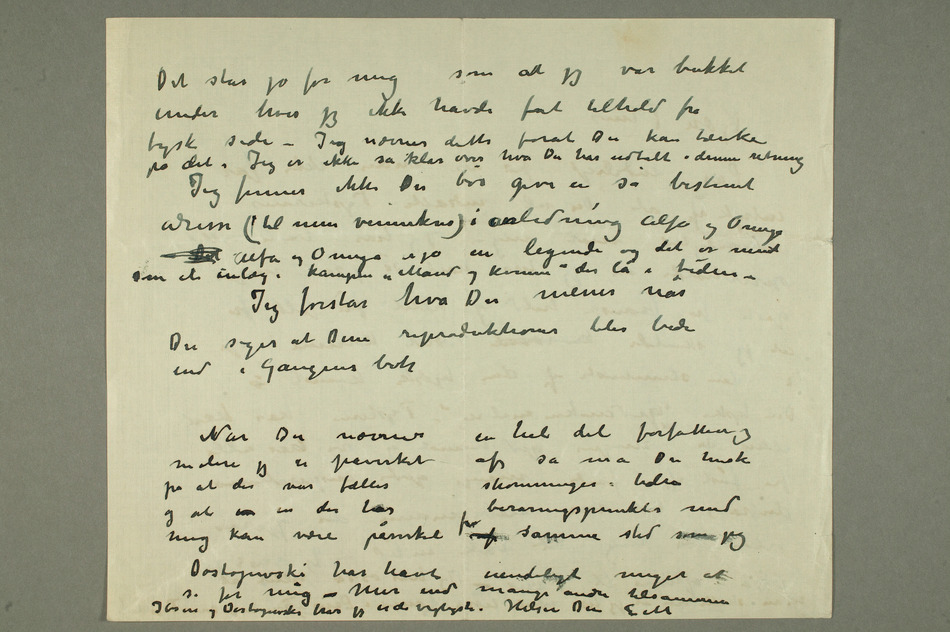 Det står jo for mig som at jeg var bukket
under hvis jeg ikke havde fåt tilhold fra
tysk side – Jeg nævner dette forat Du kan tænke
på det. Jeg er ikke så klar over hva Du har udtalt i denne retning
Jeg finner ikke Du bør give en så bestemt
adresse (til min veninnekres) i anledning Alfa og Omega
Alfa og Omega er jo en legende og det er ment
som et inlæg i kampen „Mand og kvinne" der lå i tiden –
Jeg forstår hva Du mener når
Du siger at Dine reproduktioner blir bedre
end i Gaugins bok
Når Du nævner en hel del forfattere og
malere jeg er påvirket af så må Du huske
på at der var fælles strømninger i tiden
og at en der har berøringspunkter med
mig kan være påvirket fra samme sted som jeg
Dostojewski har havt uendeligt meget at
si for mig – mer end mange andre tilsammen
Ibsen og Dostojewski tror jeg er de vigtigste. Hilsen Din E M